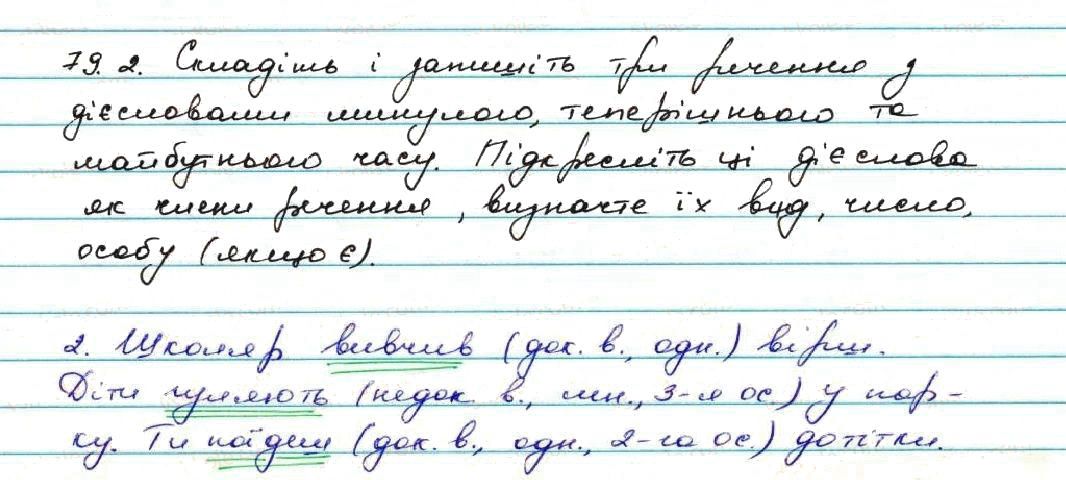 79. 2. Складіть і запишіть три речення з
дієсловами минулого, теперішнього та
майбутнього часу. Підкресліть ці дієслова
як члени речення, визначте їх вид, число,
особу (якщо є).
2. Школяр вивчив (док. в., одн.) вірш.
Діти гуляють (недок. в., мн., 3-я ос.) у пар-
ку. Ти поїдеш (док. в., одн., 2-га ос.) до тітки.